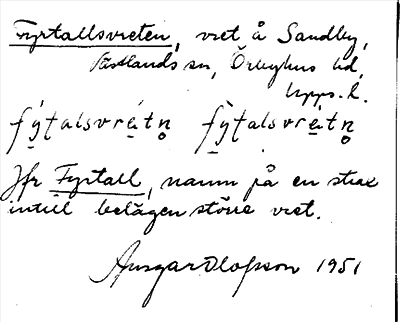 Fyrtallsvreten, vret å Sandby,
Västlands sn, Örbyhus hd,
Upps. l.
fý̱ṭalsvré̱tn̥ fỳ̱ṭalsvré̱tn̥
Jfr Fyrtall, namn på en strax
intill belägen större vret.
Ansgar Olofsson 1951